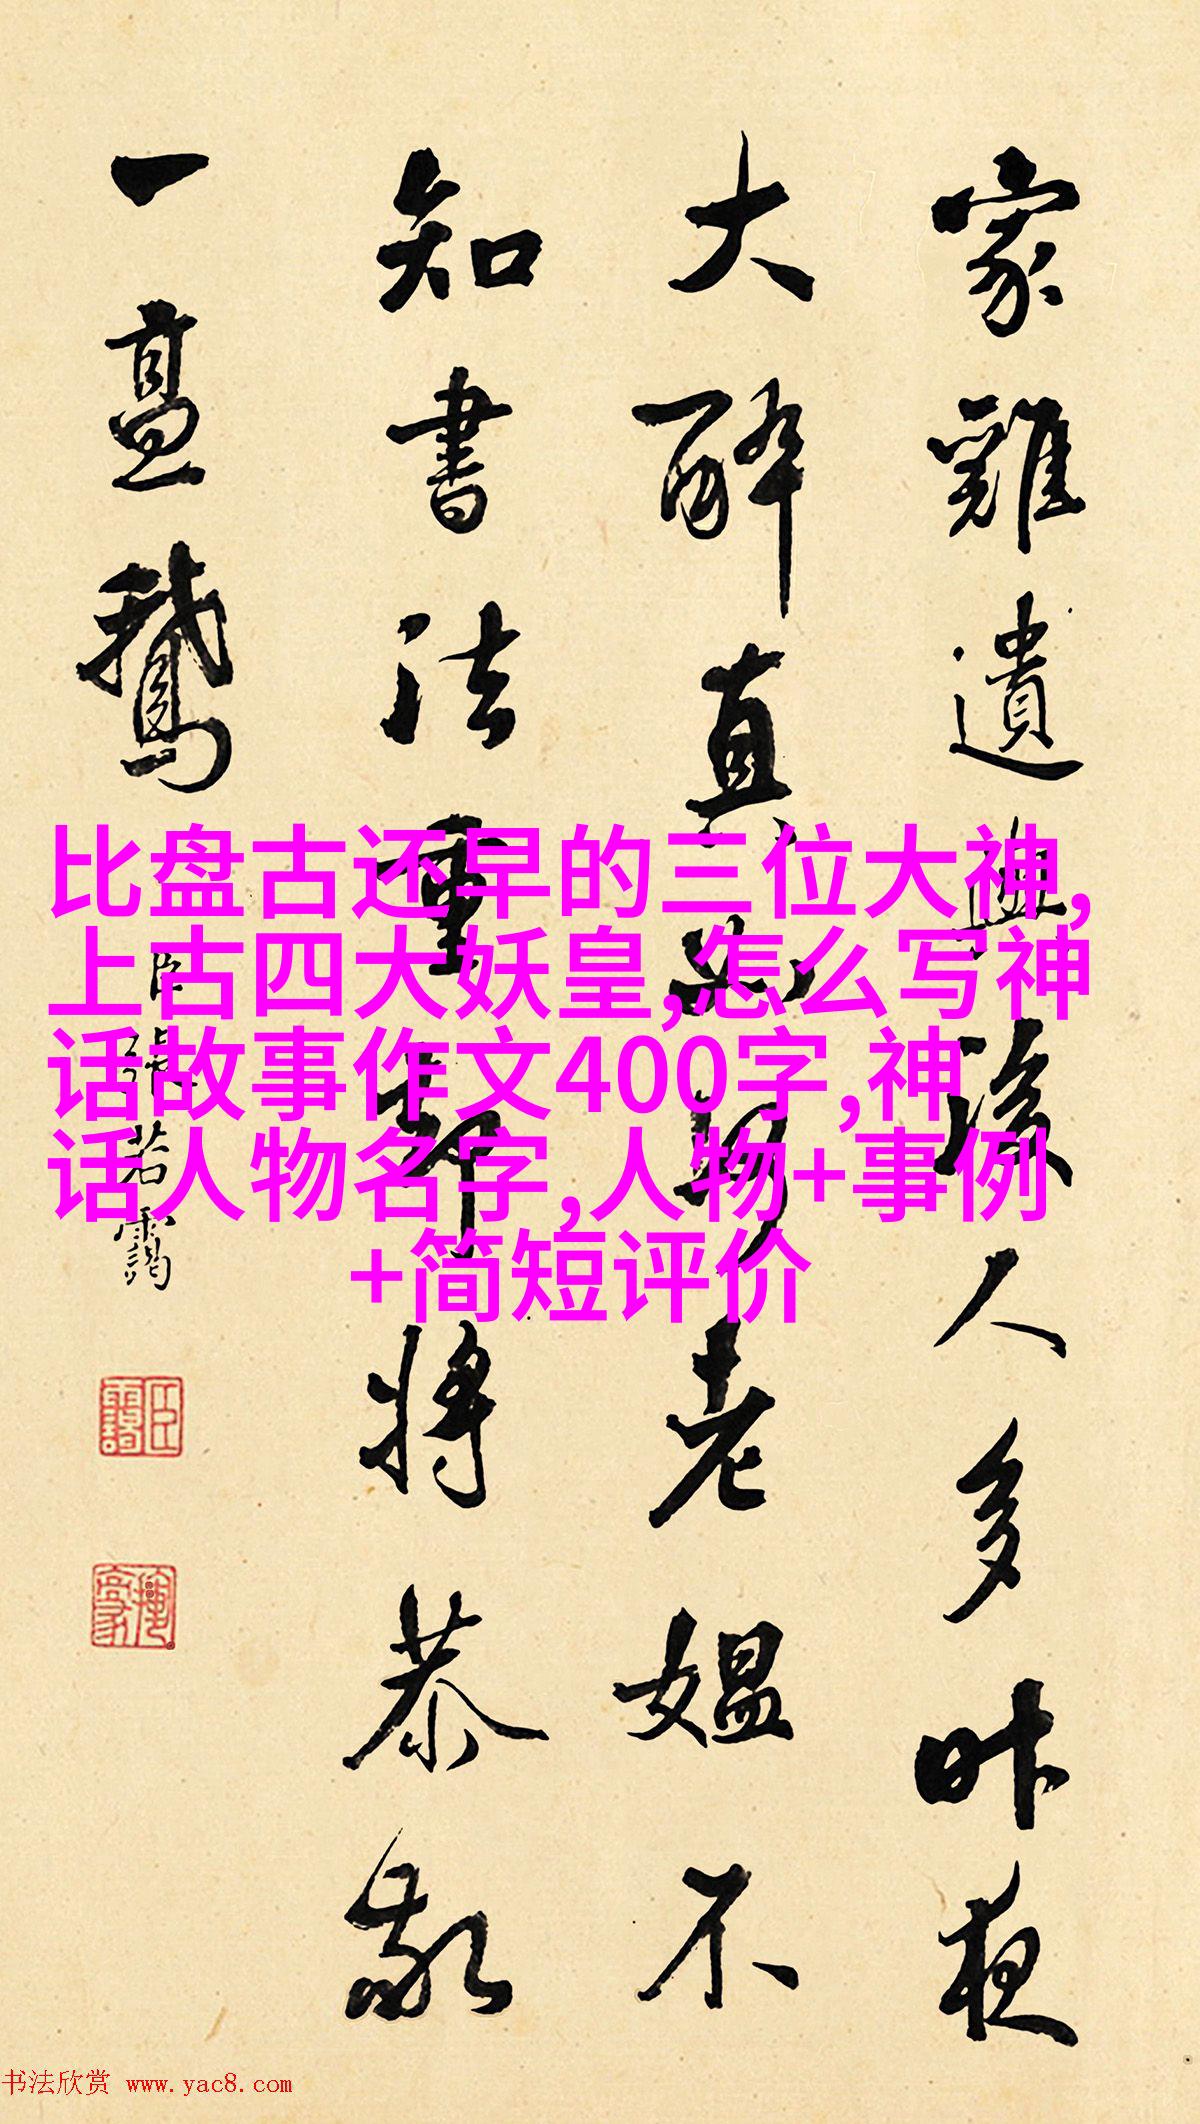 家雞遺
人多昨夜
大醉真
老媪不
知書法
將恭敬
一
鵝
臣張若靄
比盘古还早的三位大神,
上古四大妖皇,怎么写神
话故事作文400字,神
话人物名字,人物+事例
+简短评价
书法欣赏 www.yac8.com